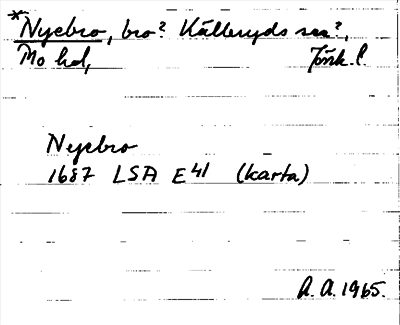 *Nyebro, bro? Källeryds sn?,
Mo hd, Jönk. l.
Nyebro
1687 LSA E41 (karta)
A. A. 1965.